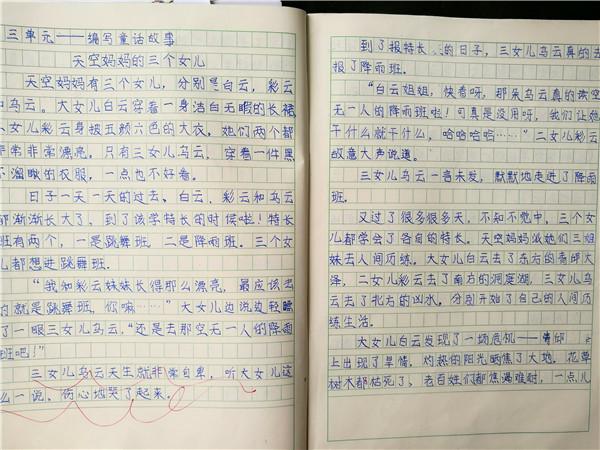 三单元——编写童话故事
天空妈妈的三个女儿
天空妈妈有三个女儿，分别是白云，彩云
和乌云。大女儿白云穿着一身洁白无暇的长裙
二女儿彩云身披五颜六色的大衣。她们两个都
非常非常漂亮。只有三女儿乌云，穿着一件黑
不溜啾的衣服，一点也不好看。
日子一天一天的过去，白云、彩云和乌云
都渐渐长大了。到了该学特长的时候啦！特长
班有两个，一是跳舞班，二是降雨班。三个女
儿都想进跳舞班。
“我和彩云妹妹长得那么漂亮，最应该
的就是跳舞班，你嘛……”大女儿边说边轻瞧
了一眼三女儿乌云，“还是去那空无一人的降雨
班吧！”
三女儿乌云天生就非常自卑，听大女儿这
么一说，伤心地哭了起来。
到了报特长的日子，三女儿乌云真的去
报了降雨班。
“白云姐姐，快看呀，那朵乌云真的读空
无一人的降雨班啦！可真是没用呀，我们让她
干什么就干什么，哈哈哈哈……”二女儿彩云
故意大声说道。
三女儿乌云一言未发，默默地走进了降雨
班。
又过了很多很多天，不知不觉中，三个女
儿都学会了各自的特长。天空妈妈派她们三姐
妹去人间历练。大女儿白云去了东方的雷师大
泽，二女儿彩云去了南方的洞庭湖，三女儿乌
云去了北方的凶水。分别开始了自己的人间历
练生活。
大女儿白云发现了一场危机——青邱
上出现了旱情，灼热的阳光晒焦了大地，花草
树木都枯死了，老百姓们都焦渴难耐，一点儿